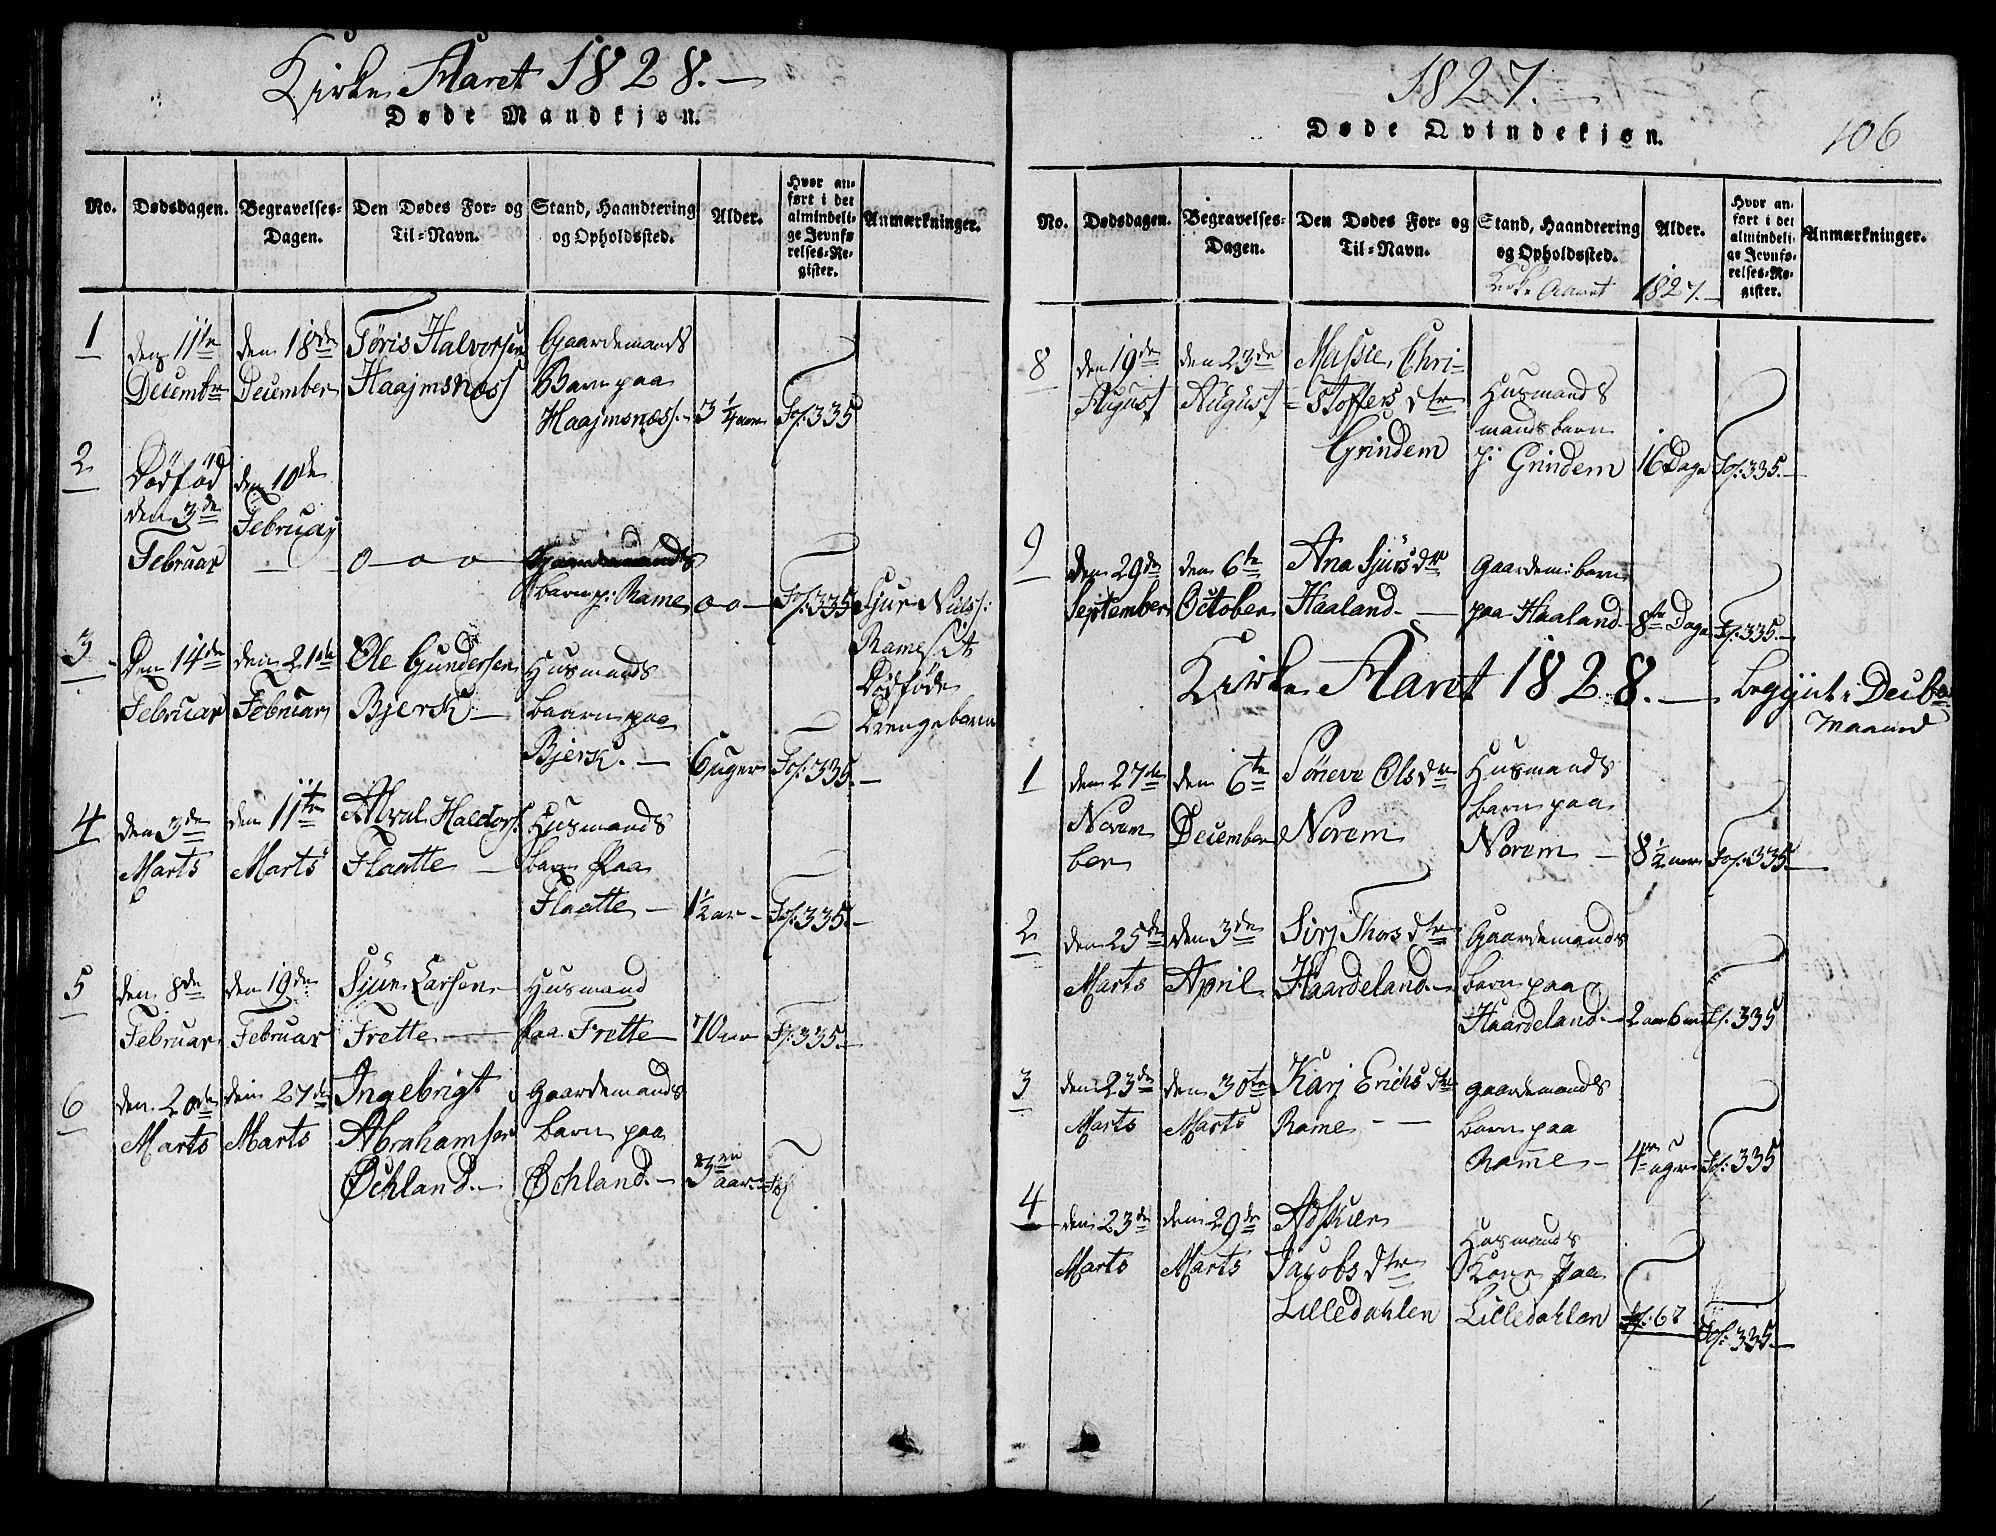 Kirke Aaret 1828.
Døde Mandkjøn.
No. Dødsdagen. Begravelses-Dagen. Den Dødes For- og Til-Navn. Stand, Haandtering og Opholdssted. Alder. Hvor anført i det almindelige Jevnførelses-Register. Anmærkninger.
1
den 11te Decembr
den 18de December
Töris Halvorsen
Haajmsnæss
Gaardemands
Barn paa
Haajmsnæss.
3 1/4 aar
Fol: 335
2
Dødfød
den 3de
Februar
den 10de
Februarj
o — o — o
Gaardemands
barn p: Rame
o o —
Fol: 335
Sjur Niels:
Rame sit
Dødføde
Drengebarn
3
Den 14de
Februar
den 21de
Februar
Ole Gundersen
Bjerk —
Husmands
baarn paa
Bjerk. —
6 uger
Fol: 335. —
4
den 3de
Marts
den 11te
Marts
Haldors.
Flaatte —
Husmands
barn paa
Flaatte —
1 1/2 ar —
Fol: 335. —
5
den 8de
Februar
den 19de
Februar
Sjur Larsen
Frette —
Husmand
paa Frette —
70 aar
Fol: 335. —
6
den 20de
Marts
den 27de
Marts
Ingebrigt
Abrahamsen
Øchland. —
Gaardemands
barn paa
Øchland. —
3 aar
Fol
1827. —
Døde Qvindekjøn.
106
No. Dødsdagen. Begravelses-Dagen. Den Dødes For- og Til-Navn. Stand, Haandtering og Opholdssted. Alder. Hvor anført i det almindelige Jevnførelses-Register. Anmærkninger.
Kirke Aaret 1827. —
8
den 19de
August
den 23de
August
Massie, Chri-
-stoffers dtr
Grindem
Husmands
mands barn
p: Grindem
16 Dage
Fol: 335. —
9
den 29de
September
den 6te
October
Ana Sjurs dtr
Haaland. —
Gaardem: barn
paa Haaland.
8te Dage
Fol: 335. —
Kirke Aaret 1828. — begynt i Decbr
Maaned
1
den 27de
Novem
ber
den 6te
December
Söneve Ols dtr
Norem
Husmands
barn paa
Norem —
8 1/2 aar
Fol: 335. —
2
den 25de
Marts
den 3de
April
Sirj Thors dtr
Haardeland. —
Gaardemands
barn paa
Haardeland. —
2 aar 6 m
Fol: 335
3
den 23de
Marts
den 30te
Marts
Karj Erichs dtr
Rame — —
gaardemands
barn paa
Rame —
4re uger
Fol: 335
4
den 23de
Marts
den 29de
Marts
Jacobs dtr
Lilledahlen
Husmands
Kone paa
Lilledahlen
67
Fol: 335. —